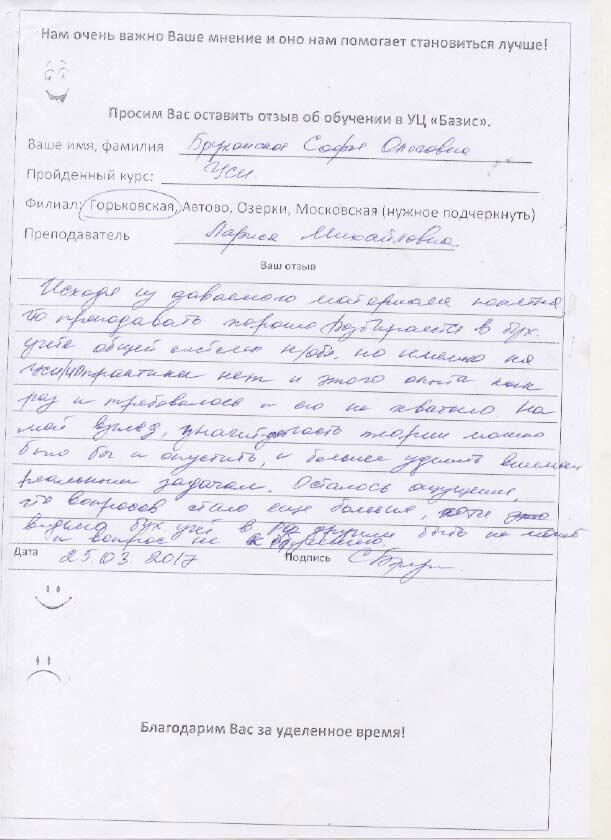 Нам очень важно Ваше мнение и оно нам помогает становиться лучше!
Просим Вас оставить отзыв об обучении в УЦ «Базис».
Ваше имя, фамилия Софья Олеговна
Пройденный курс: УСН.
Филиал: Горьковская, Автово, Озерки, Московская (нужное подчеркнуть)
Преподаватель Лариса Михайловна
Ваш отзыв
Исходя из даваемого материала понятно,
что преподавать хорошо разбирается в бух.
учёте общей системы н/обл, но именно на
практики нет и этого опыта как
раз и требовалось и его не хватило. На
мой взгляд, часть теории можно
было бы и опустить, и больше уделить вниман
реальным задачам. Осталось ощущение,
что вопросов стало еще больше, хотя
видимо бух учёт в быть не может
и вопрос не к
Дата 25.03.2017 Подпись
Благодарим Вас за уделенное время!